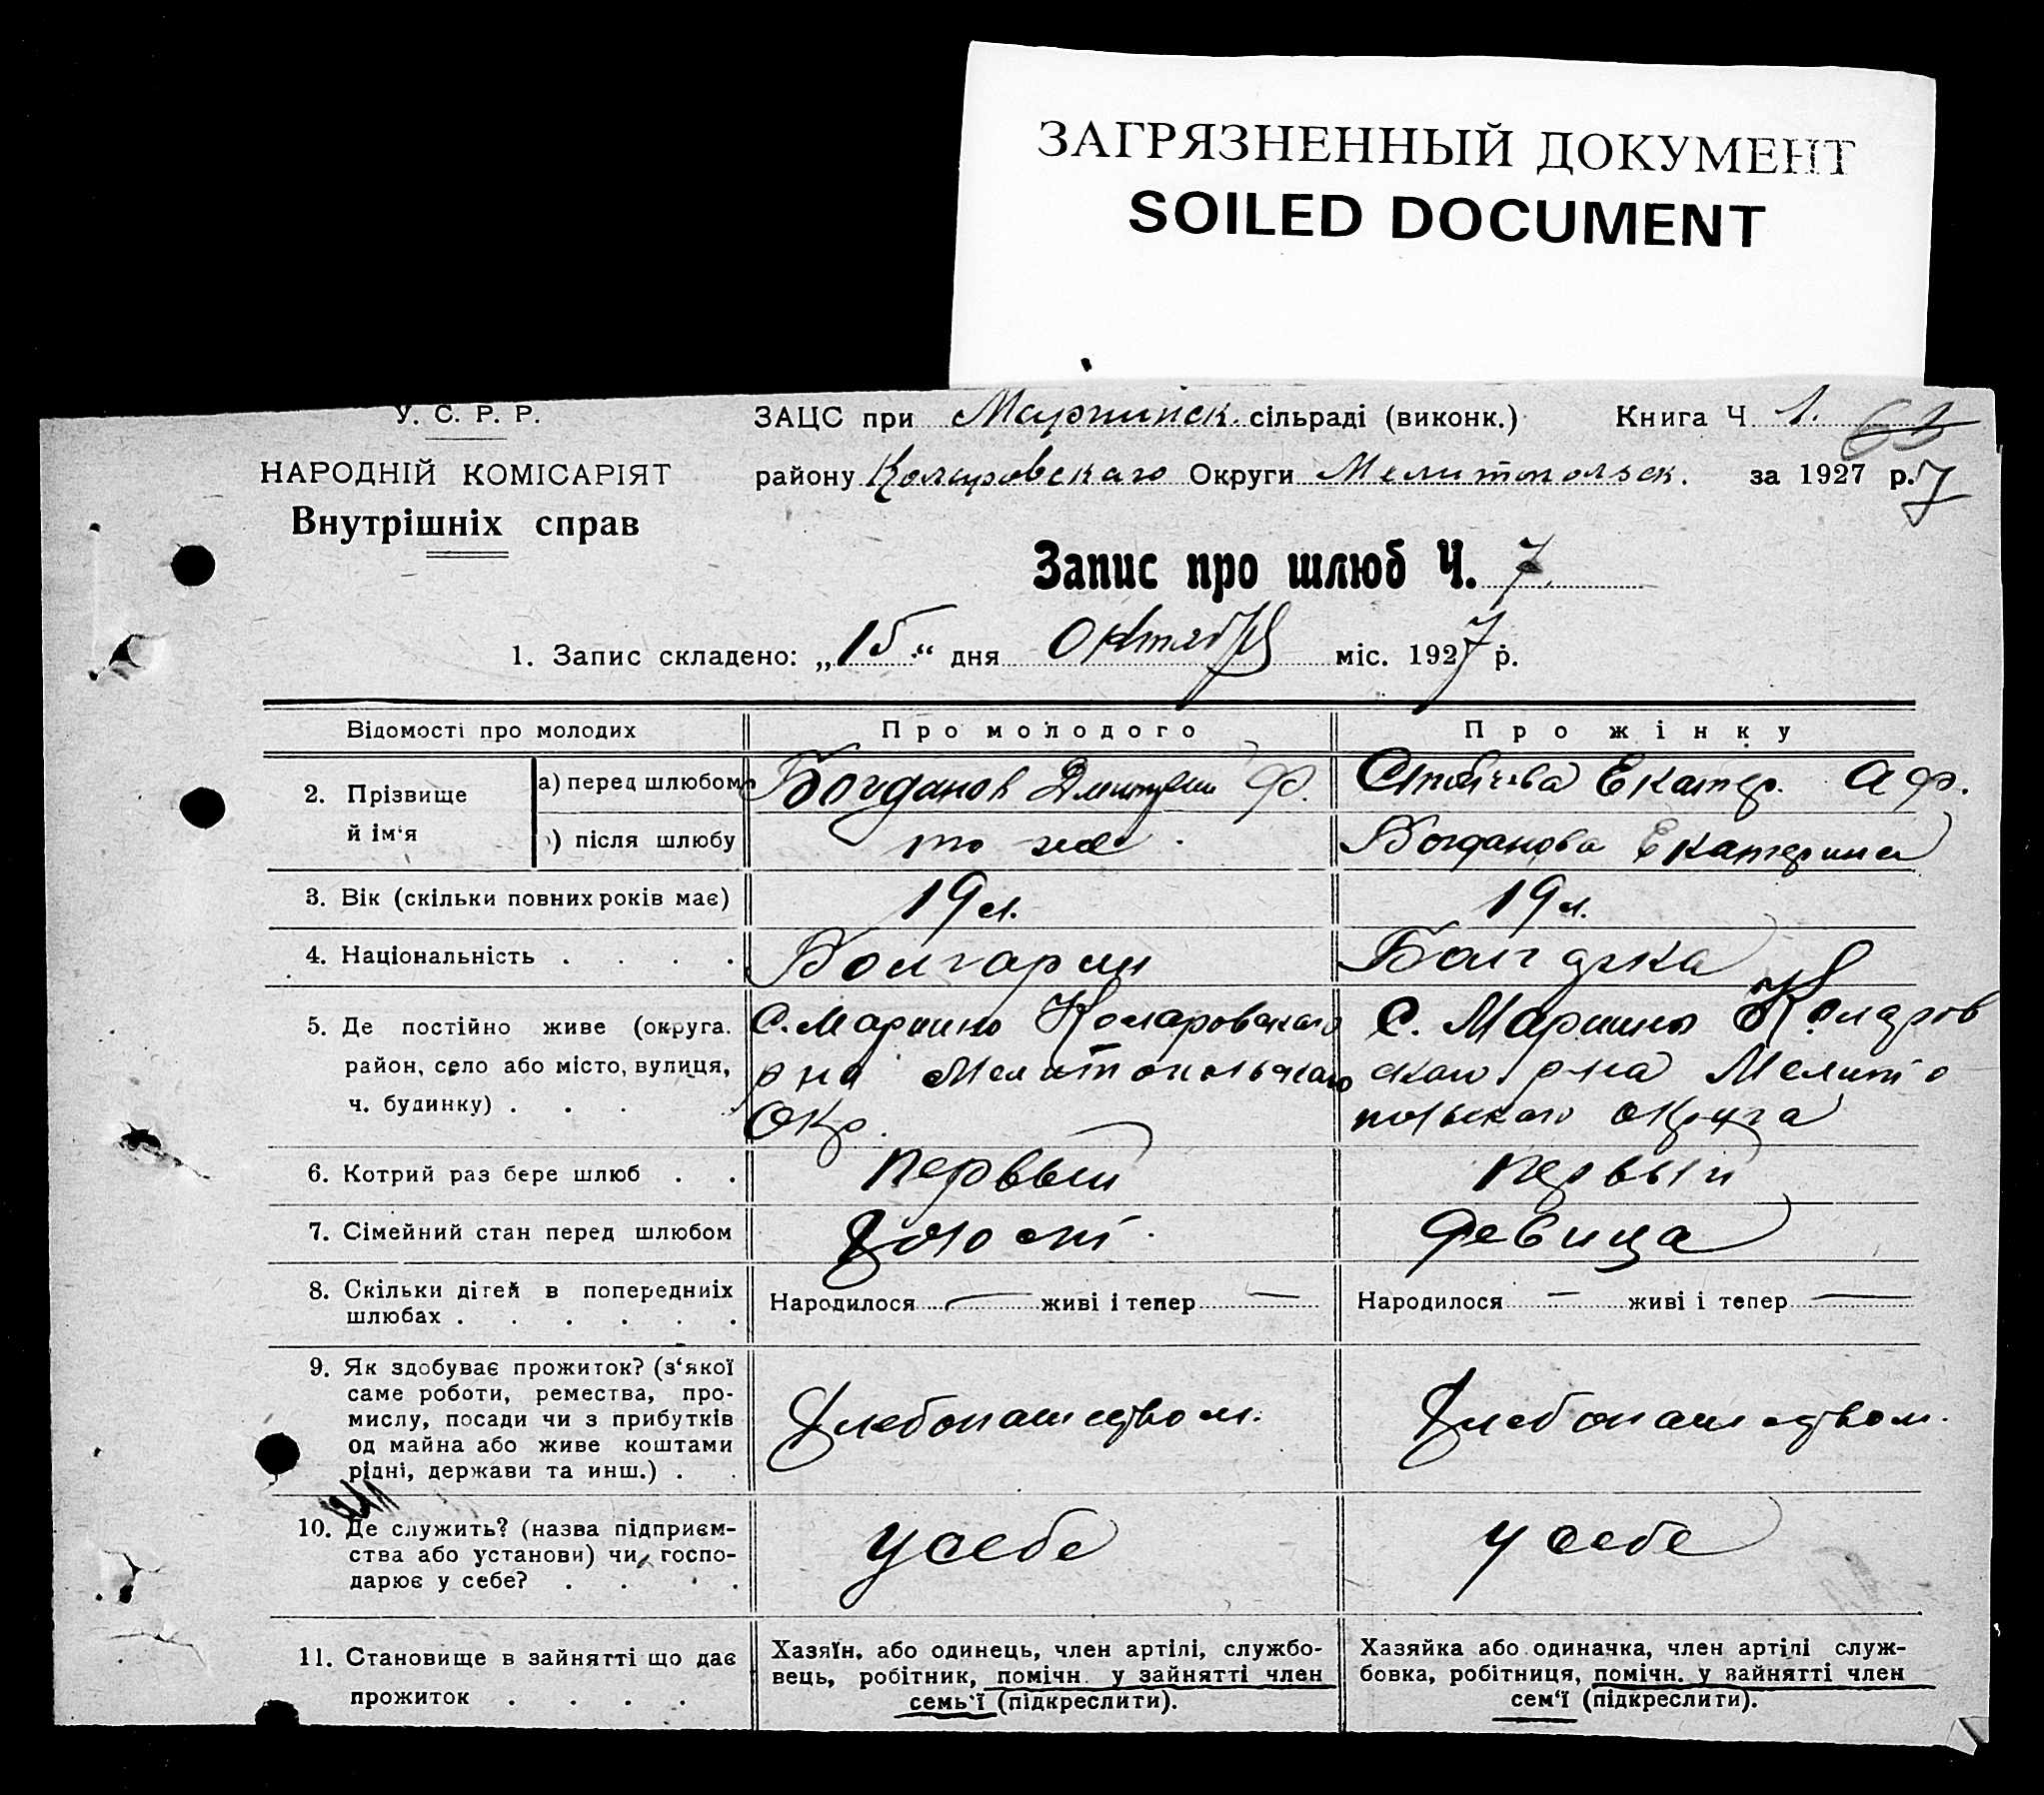 ЗАГРЯЗНЕННЫЙ ДОКУМЕНТ
SOILED DOCUMENT
У. С. Р. Р.
НАРОДНІЙ КОМІСАРІЯТ
Внутрішніх справ
ЗАЦС при Мариинск. сільраді (виконк.) Книга Ч 1. 63
району Коларовскаго Округи Мелитопольск. за 1927 р. 7
Запис про шлюб Ч. 7
1. Запис складено: „15“ дня Октября міс. 1927 р.
Відомості про молодих Про молодого Про жінку
2. Прізвище й ім‘я
а) перед шлюбом Богданов Дмитрий Ф. Стойчева Екатер. Аф.
) після шлюбу то же Богданова Екатерина
3. Вік (скільки повних років має) 19 л. 19 л.
4. Національність . . . . Болгарин Болгарка
5. Де постійно живе (округа. район, село або місто, вулиця, ч. будинку) . . .
С. Мариино Коларовскаго
р на Мелитопольскаго
Окр.
С. Мариино Коларов
скаго р-на Мелито
польскаго округа
6. Котрий раз бере шлюб . . первый первый
7. Сімейний стан перед шлюбом Холост. девица
8. Скільки дітей в попередниіх
шлюбах . . . . . .
Народилося — живі і тепер — Народилося — живі і тепер —
9. Як здобуває прожиток? (з‘якої
саме роботи, ремества, про-
мислу, посади чи з прибутків
од майна або живе коштами
рідні, держави та инш.) . .
Хлебопашеством. Хлебопашеством.
10. Де служить? (назва підприєм-
ства або установи) чи, госпо-
дарює у себе? . . . .
у себе у себе
11. Становище в зайнятті що дає
прожиток . . . .
Хазяїн, або одинець, член артілі, службо-
вець, робітник, помічн. у зайнятті член
семь‘ї (підкреслити).
Хазяйка або одиначка, член артілі служ-
бовка, робітниця, помічн. у зайнятті член
сем‘ї (підкреслити).